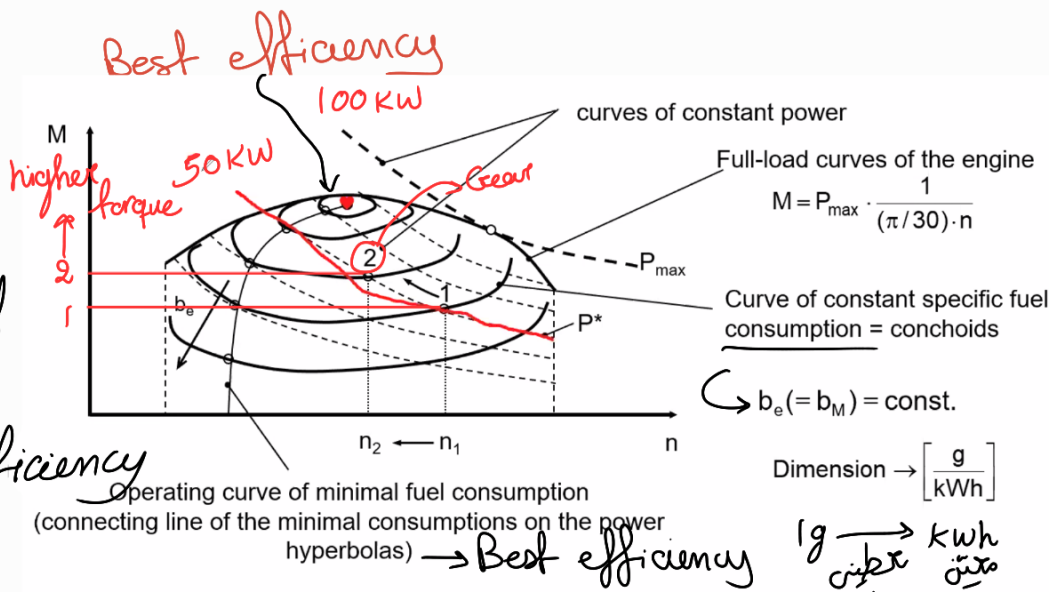 Best efficiency
100 KW
curves of constant power
M
50 KW
Gear
Full-load curves of the engine
M = Pmax · 1 / (π/30)·n
higher
torque
2
1
2
1
Pmax
be
P*
Curve of constant specific fuel
consumption = conchoids
be(= bM) = const.
n2 ← n1
n
ficiency
Dimension → [g / kWh]
Operating curve of minimal fuel consumption
(connecting line of the minimal consumptions on the power
hyperbolas) → Best efficiency
1g → kwh